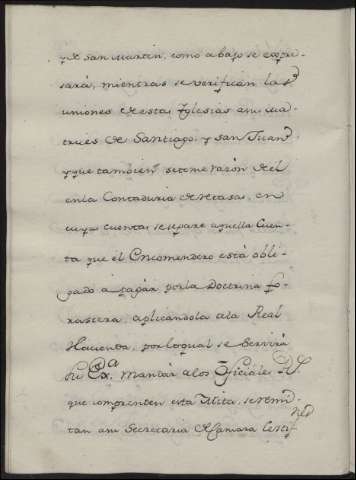 y de San Martin, como abajo se expre-
sará, mientras se verifican las
uniones de estas Yglesias a sus
de Santiago, y San Juan
y que tambien se tome razón de él
en la Contaduria de retasas, en
cuya cuenta se separe aquella Cuen-
ta que el Encomendero está obli-
gado a pagar por la Doctrina fo-
rastera, aplicandola a la Real
Hacienda, por lo qual se Servirá
Su Exa. mandar a los Oficiales Rs.
que comprenden esta Mita, se remi-
tan a su Secretaria de Camara